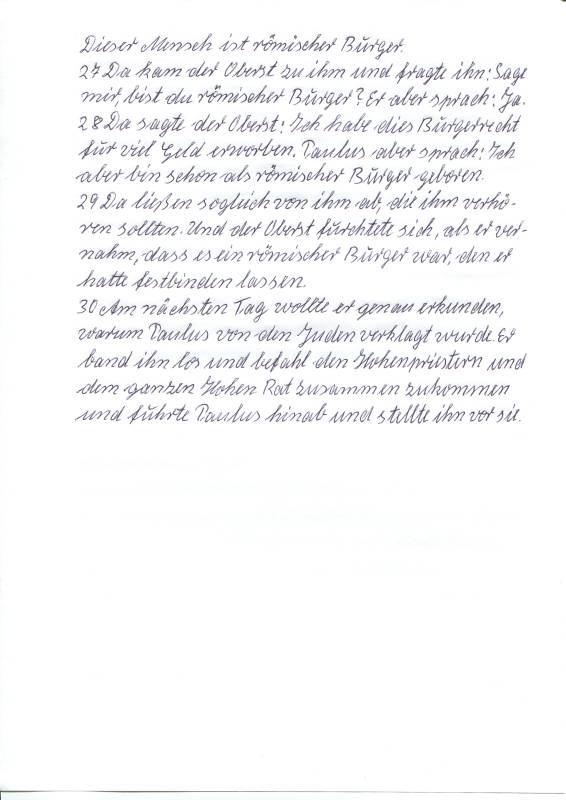 Dieser Mensch ist römischer Bürger.
27 Da kam der Oberst zu ihm und fragte ihn: Sage
mir, bist du römischer Bürger? Er aber sprach: Ja.
28 Da sagte der Oberst: Ich habe dies Bürgerrecht
für viel Geld erworben. Paulus aber sprach: Ich
aber bin schon als römischer Bürger geboren.
29 Da ließen sogleich von ihm ab, die ihm verhö-
ren sollten. Und der Oberst fürchtete sich, als er ver-
nahm, dass es ein römischer Bürger war, den er
hatte festbinden lassen.
30 Am nächsten Tag wollte er genau erkunden,
warum Paulus von den Juden verklagt wurde. Er
band ihn los und befahl den Hohenpriestern und
dem ganzen Hohen Rat zusammen zukommen
und führte Paulus hinab und stellte ihn vor sie.